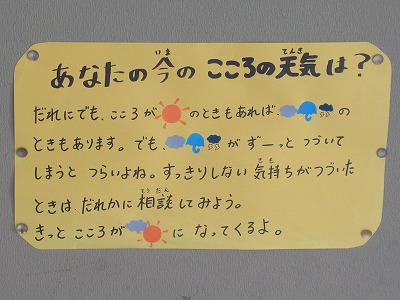 あなたの今のこころの天気は?
だれにでも、こころが☀のときもあれば、☁☂🌧の
ときもあります。でも、☁☂🌧がずーっとつづいて
しまうとつらいよね。すっきりしない気持ちがつづいた
ときは、だれかに相談してみよう。
きっとこころが🌤になってくるよ。